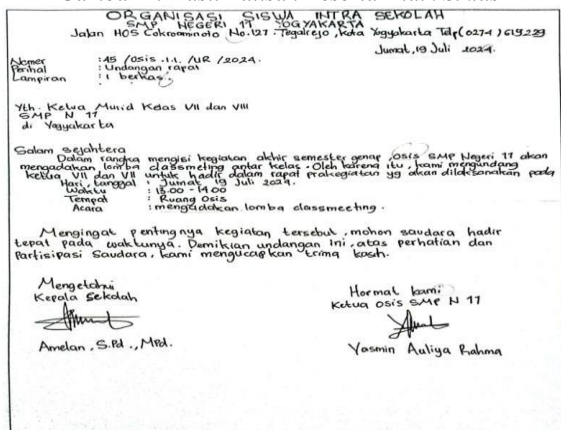 ORGANISASI SISWA INTRA SEKOLAH
SMP NEGERI 11 YOGYAKARTA
Jalan HOS Cokroaminoto No.127 Tegalrejo, Kota Yogyakarta Telp(0274)
Jumat, 19 Juli 2024.
Nomer : 45 /osis .1.1. /UR /2024.
Perihal : Undangan rapat
Lampiran : 1 berkas.
Yth. Ketua Murid Kelas VII dan VIII
SMP N 11
di Yogyakarta
Salam sejahtera
Dalam rangka mengisi kegiatan akhir semester genap, OSIS SMP Negeri 11 akan
mengadakan lomba classmeting antar kelas. Oleh karena itu, kami mengundang
ketua VII dan VII untuk hadir dalam rapat prakegiatan yg akan dilaksanakan pada
Hari, tanggal : Jumat 19 Juli 2024.
Waktu : 13.00 - 14.00
Tempat : Ruang Osis
Acara : mengadakan lomba classmeeting.
Mengingat pentingnya kegiatan tersebut, mohon saudara hadir
tepat pada waktunya. Demikian undangan ini, atas perhatian dan
Partisipasi Saudara, kami mengucapkan trima kasih.
Mengetahui
Kepala Sekolah
Hormat kami
Ketua OSIS SMP N 11
Amelan, S.Pd ., MPd.
Yasmin Auliya Rahma